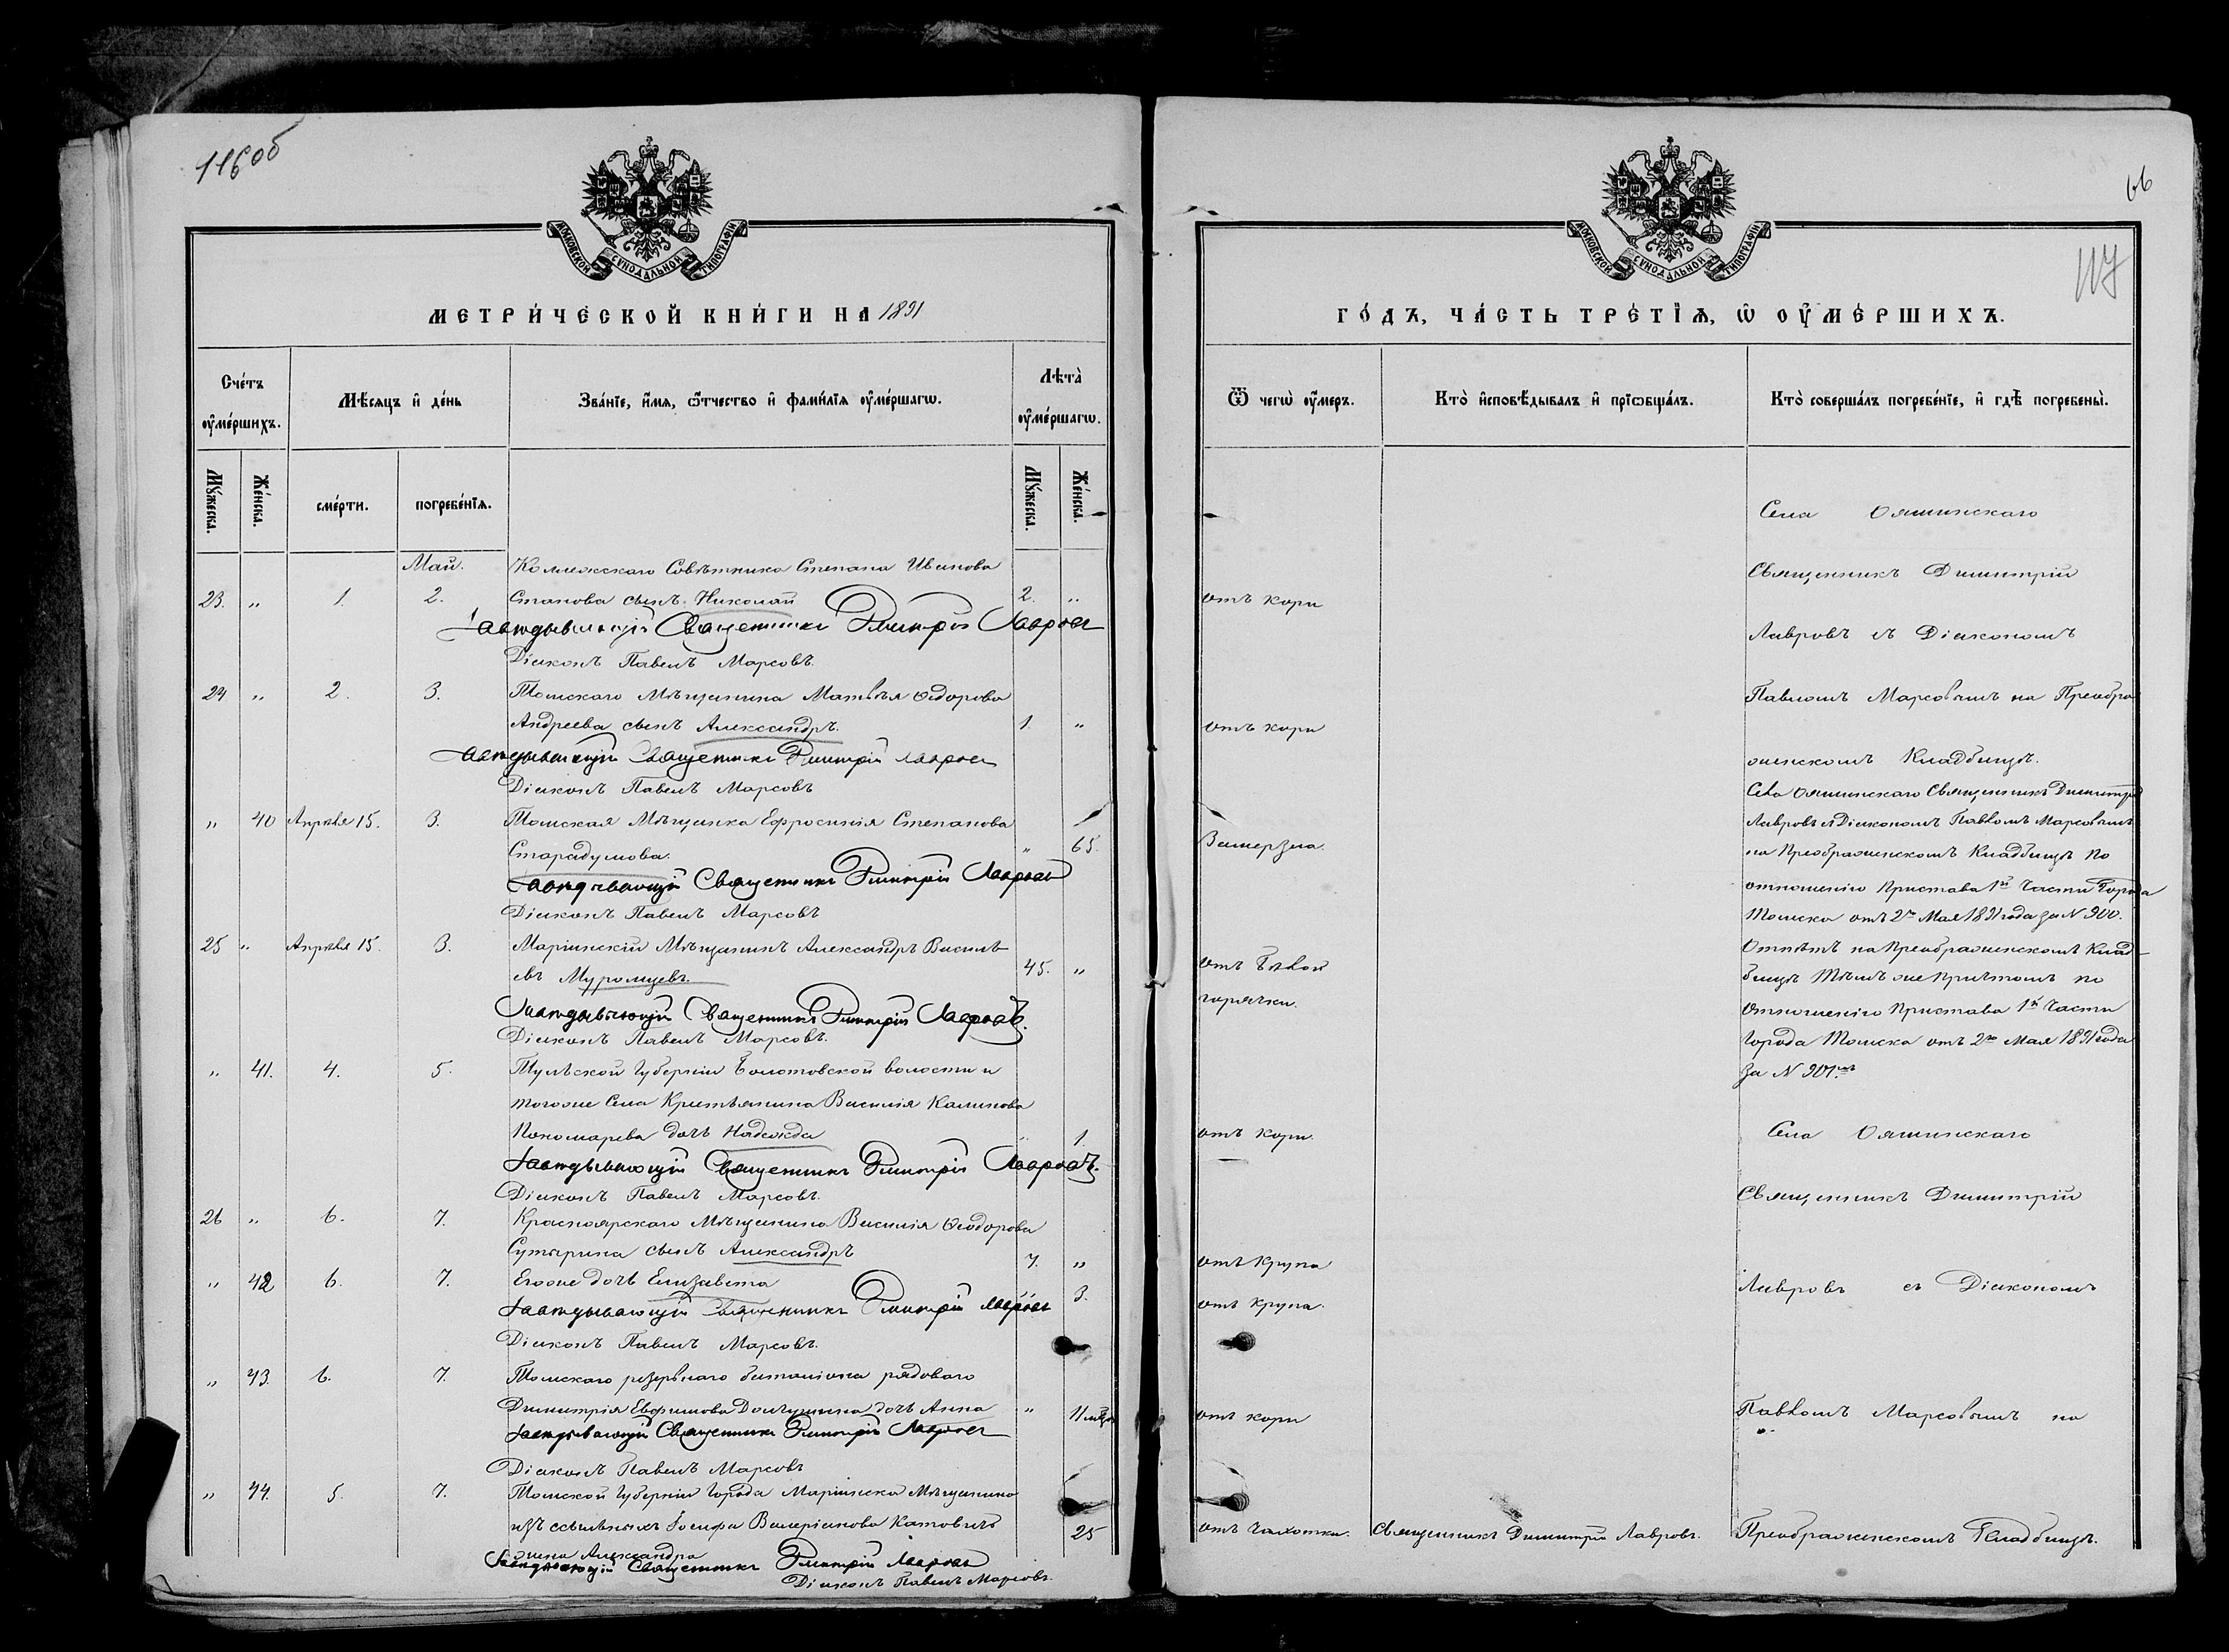 116об
МОСКОВСКОЙ СѴНОДАЛЬНОЙ ТИПОГРАФІИ
МЕТРИ́ЧЕСКОЙ КНИ́ГИ НА 1891
Сче́тъ ᲂу҆ме́ршихъ.
Мѣ́сяцъ и҆ де́нь
Зва́нїе, и҆́мя, ѻ҆́тчество и҆ фами́лїя ᲂу҆ме́ршагѡ.
Лѣ́та ᲂу҆ме́ршагѡ.
Мꙋ́жеска.
Же́нска.
сме́рти.
погребе́нїѧ.
Мꙋ́жеска.
Же́нска.
Май.
Коллежскаго Совѣтника Степана Иванова
23. " 1. 2. Станова сынъ Николай 2. "
Завѣдывающій Священникъ Дмитрій Лавровъ
Діаконъ Павелъ Марсовъ.
24 " 2. 3. Томскаго Мѣщанина Матвѣя Ѳедорова
Андреева сынъ Александръ. 1. "
Завѣдывающій Священникъ Дмитрій Лавровъ
Діаконъ Павелъ Марсовъ
" 40 Апрѣля 15. 3. Томская Мѣщанка Ефросинія Степанова
Старадумова. " 65.
Завѣдывающій Священникъ Дмитрій Лавровъ
Діаконъ Павелъ Марсовъ
25 " Апрѣля 15. 3. Маріинскій Мѣщанинъ Александръ Василь-
евъ Муромцевъ. 45. "
Завѣдывающій Священникъ Дмитрій Лавровъ.
Діаконъ Павелъ Марсовъ.
" 41. 4. 5. Тульской Губерніи Болотовской волости и
тогоже Села Крестьянина Василія Калинова
Пономарева дочь Надежда 1.
Завѣдывающій Священникъ Дмитрій Лавровъ.
Діаконъ Павелъ Марсовъ.
26 " 6. 7. Красноярскаго Мѣщанина Василія Ѳеодорова
Сутырина сынъ Александръ 7. "
" 42 6. 7. Егоже дочь Елизавета 3.
Завѣдывающій Священникъ Дмитрій Лавровъ
Діаконъ Павелъ Марсовъ.
" 43. 6. 7. Томскаго резервнаго баталіона рядоваго
Димитрія Евфимова дочь Анна " 11 мѣс.
Завѣдывающій Священникъ Дмитрій Лавровъ
Діаконъ Павелъ Марсовъ
" 44. 5. 7. Томской Губерніи Города Маріинска Мѣщанина
изъ ссыльныхъ Іосифа Валеріанова Катовичъ 25
жена Александра
Завѣдывающій Священникъ Дмитрій Лавровъ
Діаконъ Павелъ Марсовъ.
66
117
МОСКОВСКОЙ СѴНОДАЛЬНОЙ ТИПОГРАФІИ
ГО́ДЪ, ЧА́СТЬ ТРЕ́ТЇѦ, Ѡ҆ ОУ҆МЕ́РШИХЪ.
Ѿ чегѡ̀ ᲂу҆́меръ.
Кто̀ и҆сповѣ́дывалъ и҆ прїѡбща́лъ.
Кто̀ соверша́лъ погребе́нїе, и҆ гдѣ̀ погребены̀.
Села Ояшинскаго
Священникъ Димитрій
отъ кори
Лавровъ съ Діакономъ
Павломъ Марсовымъ на Преобра
отъ кори
женскомъ Кладбищѣ.
Села Ояшинскаго Священникъ Димитрій
Лавровъ съ Діакономъ Павломъ Марсовымъ
Замерзла. на Преображенскомъ Кладбищѣ по
отношенію Пристава 1й Части Города
Томска отъ 2го Мая 1891 года за N 900.
Отпѣтъ на Преображенскомъ Клад-
отъ Бѣлой бищѣ Тѣмъ же Причтомъ по
горячки. Отношенію Пристава 1й Части
Города Томска отъ 2го Мая 1891 года
за N 901.мъ
отъ кори. Села Ояшинскаго
Священникъ Димитрій
отъ крупа
Лавровъ съ Діакономъ
отъ крупа.
отъ кори Павломъ Марсовымъ на
отъ Чахотки. Священникъ Димитрій Лавровъ. Преображенскомъ Кладбищѣ.